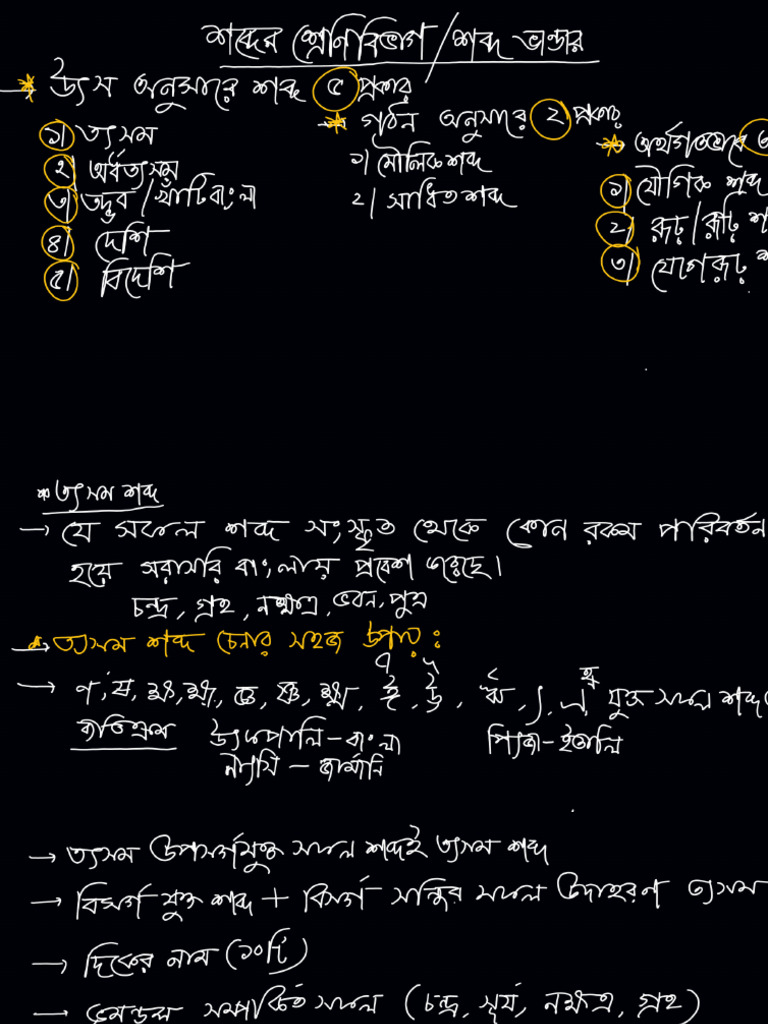 শব্দের শ্রেণিবিভাগ/শব্দ ভান্ডার
উৎস অনুসারে শব্দ ৫ প্রকার
১) তৎসম
২) অর্ধতৎসম
৩) তদ্ভব/খাঁটি বাংলা
৪) দেশি
৫) বিদেশি
গঠন অনুসারে ২ প্রকার
১) মৌলিক শব্দ
২) সাধিত শব্দ
অর্থগতভাবে
১) যৌগিক শব্দ
২) রূঢ়/রূঢ়ি শ
৩) যোগরূঢ় শ
* তৎসম শব্দ
→ যে সকল শব্দ সংস্কৃত থেকে কোন রকম পরিবর্তন
হয়ে সরাসরি বাংলায় প্রবেশ করেছে।
চন্দ্র, গ্রহ, নক্ষত্র, ভবন, পুত্র
→ তৎসম শব্দ চেনার সহজ উপায়:
→ ণ, ষ, ক্ষ, যুক্ত সকল শব্দ
ব্যতিক্রম
– বাংলা
– জার্মানি
পিৎজা – ইতালি
→ তৎসম উপসর্গযুক্ত সকল শব্দই তৎসম শব্দ
→ বিসর্গ যুক্ত শব্দ + বিসর্গ সন্ধির সকল উদাহরণ তৎসম
→ দিকের নাম (১০টি)
→ সম্পর্কিত সকল (চন্দ্র, সূর্য, নক্ষত্র, গ্রহ)